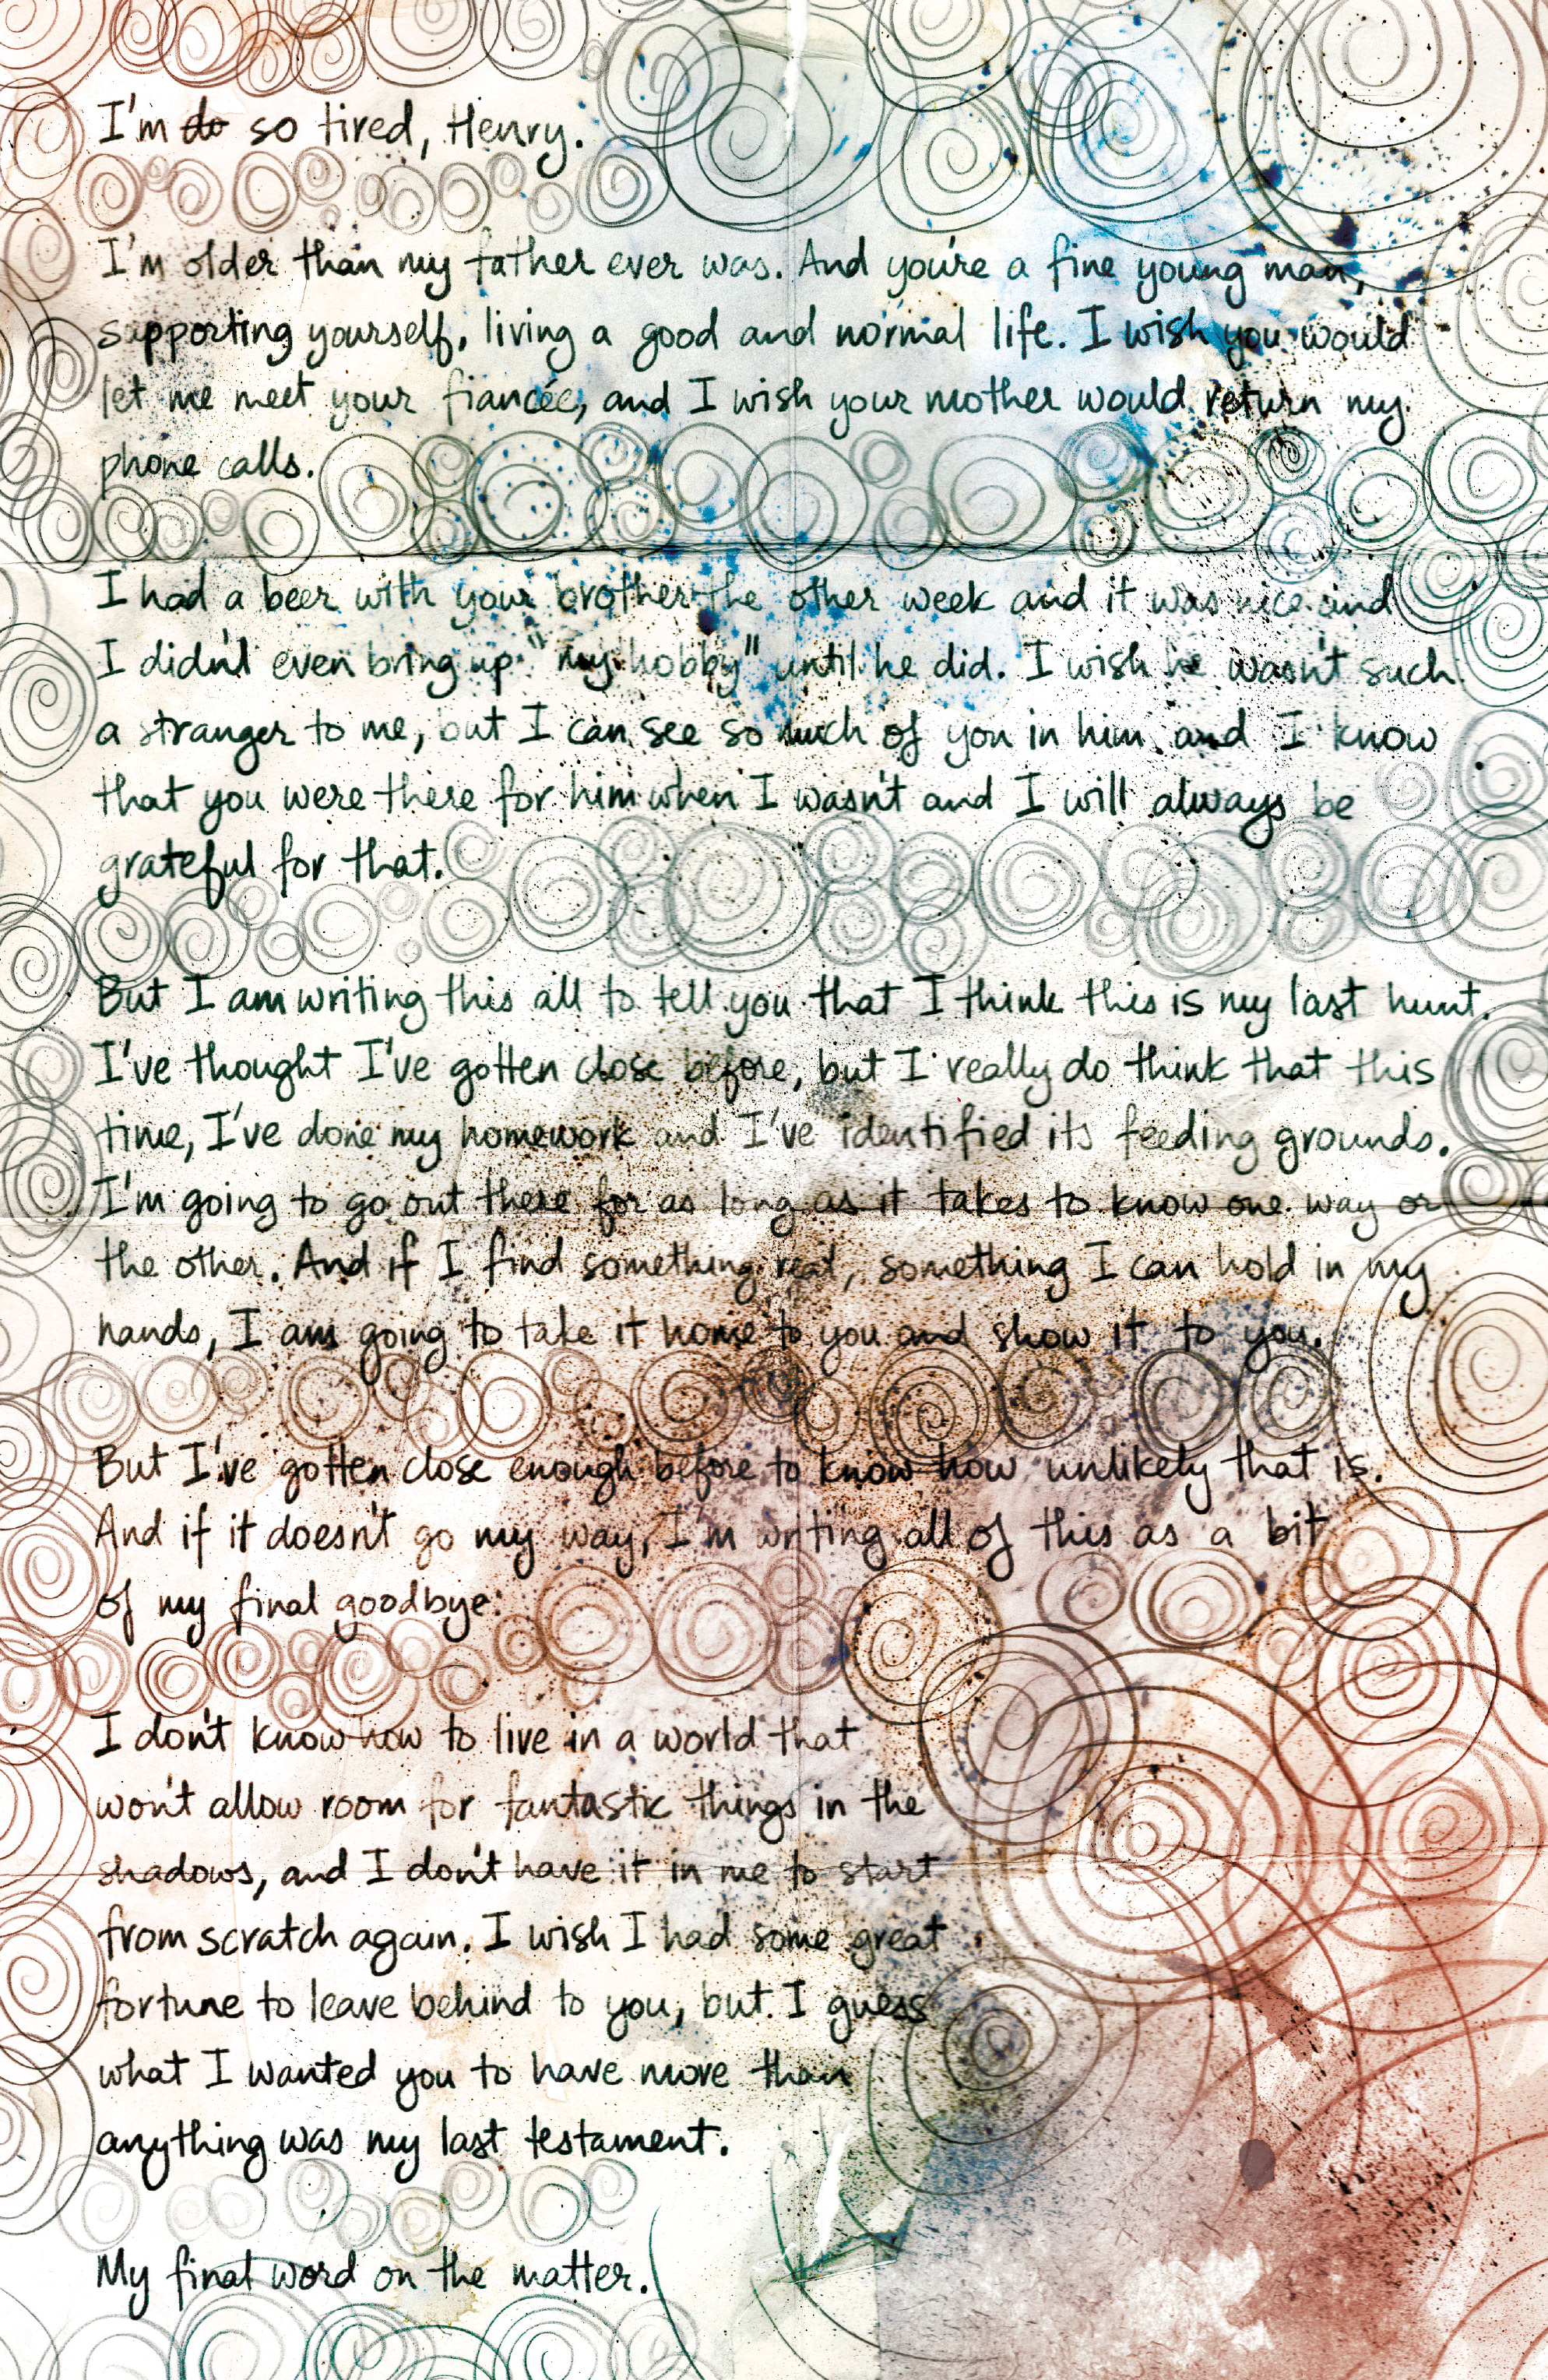 I'm do so tired, Henry.
I'm older than my father ever was. And you're a fine young man,
supporting yourself, living a good and normal life. I wish you would
let me meet your fiancée, and I wish your mother would return my
phone calls.
I had a beer with your brother the other week and it was nice and
I didn't even bring up "my hobby" until he did. I wish he wasn't such
a stranger to me, but I can see so much of you in him and I know
that you were there for him when I wasn't and I will always be
grateful for that.
But I am writing this all to tell you that I think this is my last hunt.
I've thought I've gotten close before, but I really do think that this
time, I've done my homework and I've identified its feeding grounds.
I'm going to go out there for as long as it takes to know one way or
the other. And if I find something real, something I can hold in my
hands, I am going to take it home to you and show it to you.
But I've gotten close enough before to know how unlikely that is.
And if it doesn't go my way, I'm writing all of this as a bit
of my final goodbye:
I don't know how to live in a world that
won't allow room for fantastic things in the
shadows, and I don't have it in me to start
from scratch again. I wish I had some great
fortune to leave behind to you, but I guess
what I wanted you to have more than
anything was my last testament.
My final word on the matter.